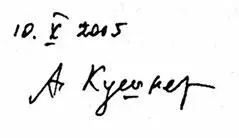 10. X 2005
А. Кушнер